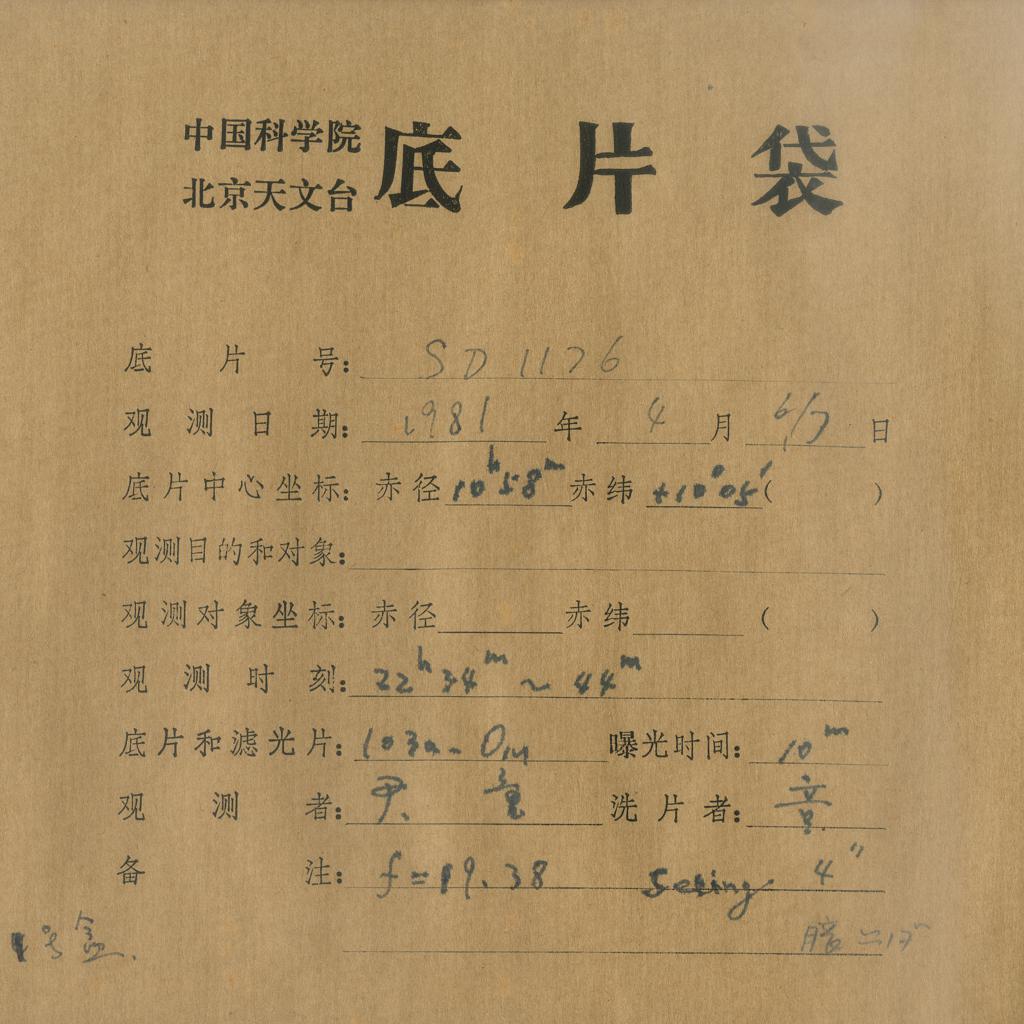 中国科学院
北京天文台
底片袋
底片号: SD 1176
观测日期: 1981年4月6/7日
底片中心坐标: 赤径 10h58m 赤纬 +10°05′( )
观测目的和对象:
观测对象坐标: 赤径 赤纬 ( )
观测时刻: 22h34m ~ 44m
底片和滤光片: 103a-O 曝光时间: 10m
观测者: 尹 洗片者:
备注: f=19.38 Seeing 4″
号盒.